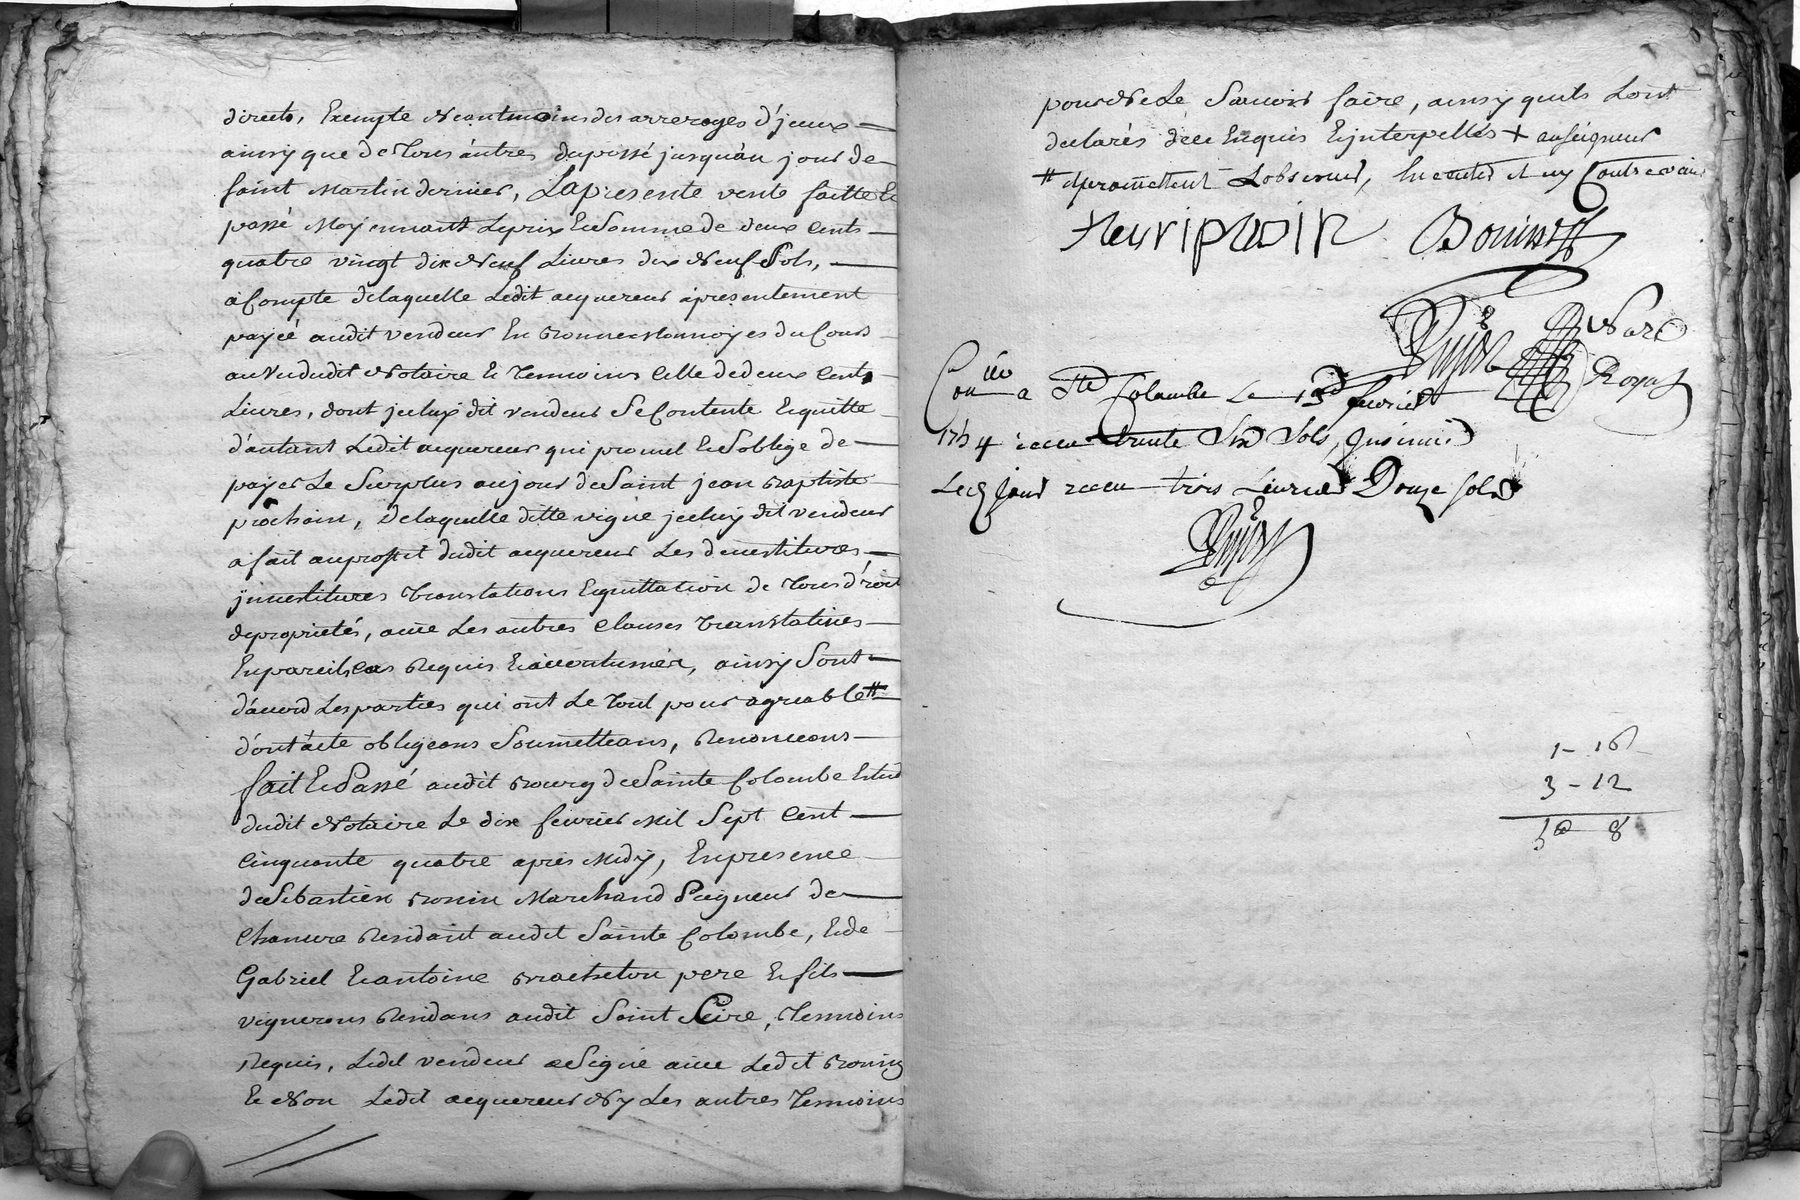 directe, Exempte Neantmoins des arrerages d'jceux
ainsy que de Tous autres du passé jusqu'au jour de
saint Martin dernier, La presente vente faitte Et
passé Moyennant Le prix Et Somme de deux Cents
quatre vingt dix Neuf Livres dix Neuf Sols,
a Compte de laquelle Ledit acquereur a presentement
payée audit vendeur En Bonnes Monnoyes du Cours
au vu dudit Notaire Et Temoins Celle de deux Cents
Livres, dont jceluy dit vendeur Se Contente Et quitte
d'autant Ledit acquereur qui promet Et S'oblige de
payer Le Surplus au jour de Saint jean Baptiste
prochain, de laquelle ditte vigne jceluy dit vendeur
a fait au proffit dudit acquereur Les devestitures
jnvestitures Translations Et quittation de Tous droit
de proprietés, avec Les autres Clauses Translatives
En pareil Cas Requis Et accoutumées, ainsy Sont
d'acord Les parties qui ont Le Tout pour agreable #
dont acte obligeans Soumettans, Renonceans
fait Et Passé audit Bourg de Sainte Colombe Etude
dudit Notaire Le dix fevrier Mil Sept Cent
Cinquante quatre apres Midy, En presence
de Sebastien Bonin Marchand Peigneur de
Chanvre Residant audit Sainte Colombe, Et de
Gabriel Et antoine Bracheton pere Et fils
vignerons Residans audit Saint Cire, Temoins
Requis, Ledit vendeur a Signé avec Ledit Bonin
Et Non Ledit acquereur Ny Les autres Temoins
pour Ne Le Sauoir faire, ainsy quils L'ont
declarés de ce Enquis Et jnterpellés + au seigneur
# Et promettent L'observer,
Bonin
Con.lé a Ste Colombe Le fevrier
1754 receu trente Six Sols, Jnsinué
Led Jour receu trois Livres Douze sols
1 - 16
3 - 12
5 8